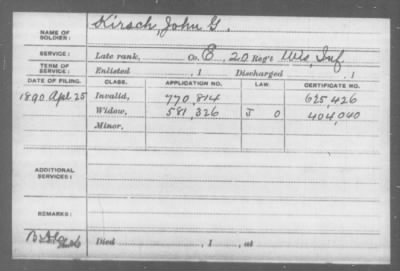 NAME OF SOLDIER: Kirsch, John G.
SERVICE: Late rank, Co. E, 20 Reg't Wis. Inf.
TERM OF SERVICE: Enlisted , 1 Discharged , 1
DATE OF FILING. CLASS. APPLICATION NO. LAW. CERTIFICATE NO.
1890 Apl 25 Invalid, 770,814 625,426
Widow, 581,326 J O 404,040
Minor,
ADDITIONAL SERVICES:
REMARKS:
Died , 1 , at